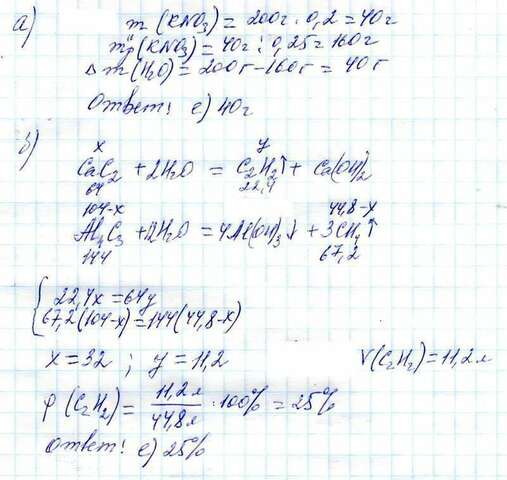 а) m (KNO₃) = 200г · 0,2 = 40г
m"р (KNO₃) = 40г : 0,25 = 160г
Δ m (H₂O) = 200г - 160г = 40г
Ответ: е) 40г
б) x y
CaC₂ + 2H₂O = C₂H₂↑ + Ca(OH)₂
64 22,4
104-x 44,8-x
Al₄C₃ + 12H₂O = 4Al(OH)₃↓ + 3CH₄↑
144 67,2
{ 22,4x = 64y
67,2(104-x) = 144(44,8-x)
x = 32 ; y = 11,2 V(C₂H₂) = 11,2л
φ (C₂H₂) = 11,2л / 44,8л · 100% = 25%
Ответ: е) 25%